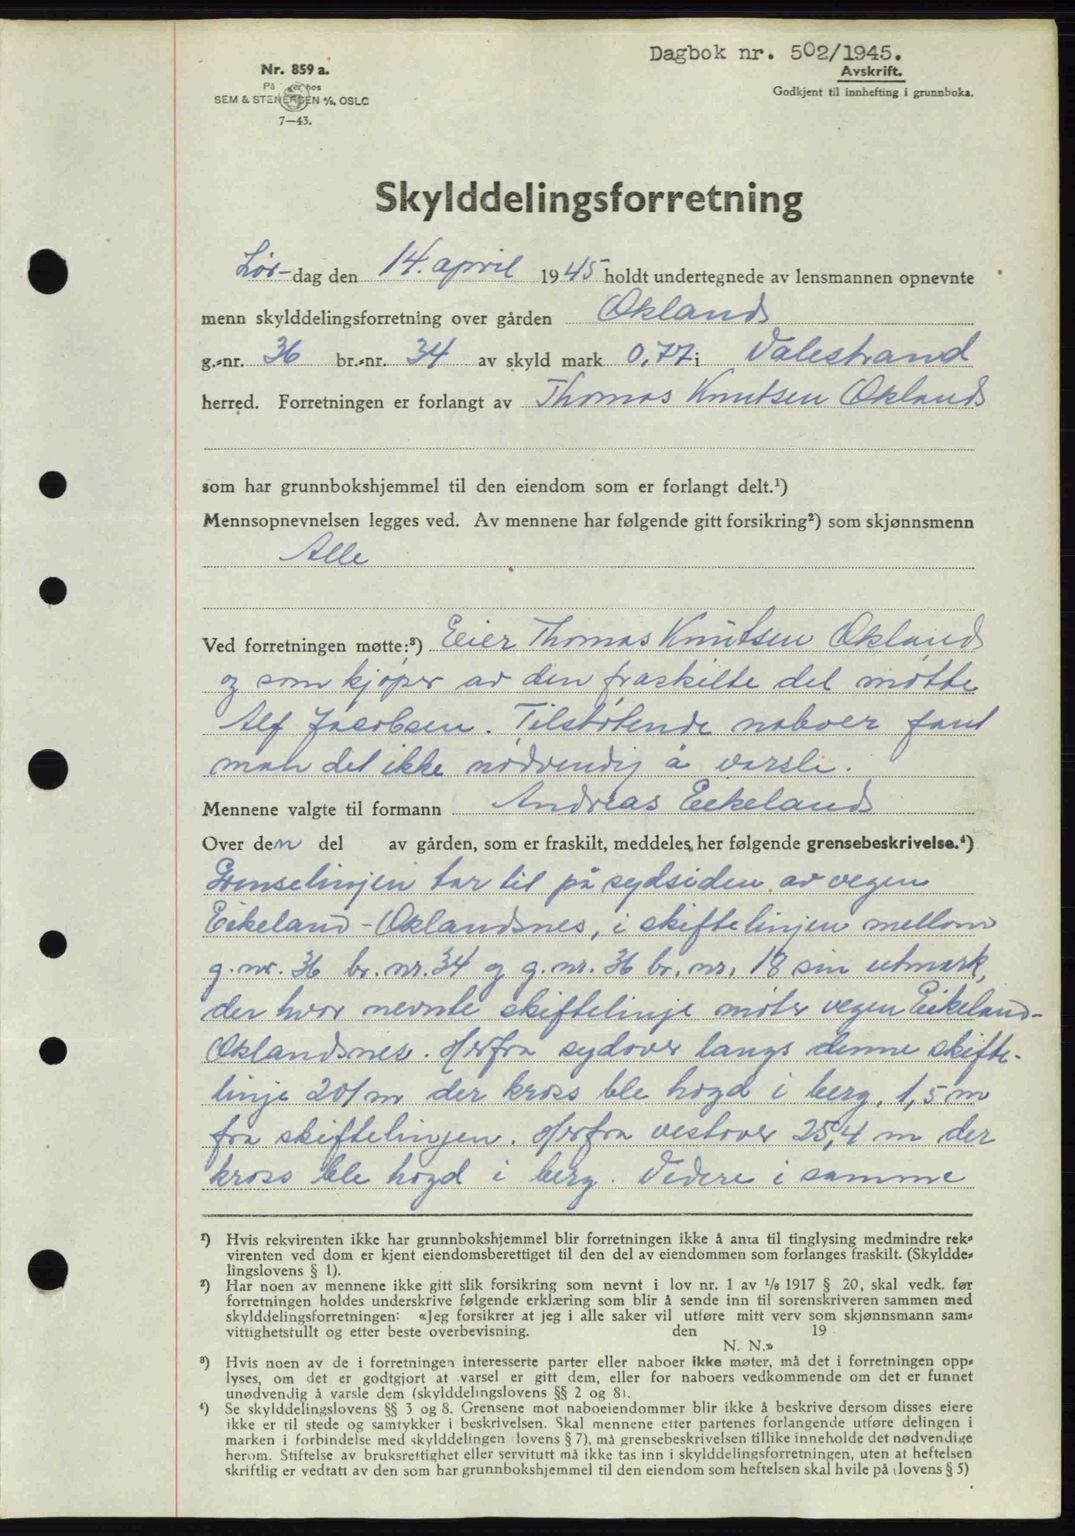 Dagbok nr. 502/1945.
Avskrift.
Godkjent til innhefting i grunnboka.
Nr. 859 a.
På hos
SEM & STENERSEN A/S. OSLO
7—43.
Skylddelingsforretning
Lør-dag den 14. april 1945 holdt undertegnede av lensmannen opnevnte
menn skylddelingsforretning over gården Økland
g.-nr. 36 br.-nr. 34 av skyld mark 0,77 i Valestrand
herred. Forretningen er forlangt av Thomas Knutsen Økland
som har grunnbokshjemmel til den eiendom som er forlangt delt.¹)
Mennsopnevnelsen legges ved. Av mennene har følgende gitt forsikring²) som skjønnsmenn
Alle
Ved forretningen møtte:³) Eier Thomas Knutsen Økland
og som kjøper av den fraskilte del møtte
Alf Jacobsen. Tilstøtende naboer fant
man det ikke nødvendig å varsle.
Mennene valgte til formann Andreas Eikeland
Over den del av gården, som er fraskilt, meddeles her følgende grensebeskrivelse.⁴)
Grenselinjen tar til på sydsiden av vegen
Eikeland-Øklandsnes, i skiftelinjen mellom
g.nr. 36 br.nr. 34 og g.nr. 36 br.nr. 18 sin utmark,
der hvor nevnte skiftelinje møter vegen Eikeland-
Øklandsnes. Herfra sydover langs denne skifte-
linje 201 m der kross ble hogd i berg, 1,5 m
fra skiftelinjen. Herfra vestover 25,4 m der
kross ble hogd i berg. Videre i samme
¹) Hvis rekvirenten ikke har grunnbokshjemmel blir forretningen ikke å anta til tinglysing medmindre rek-
virenten ved dom er kjent eiendomsberettiget til den del av eiendommen som forlanges fraskilt. (Skyldde-
lingslovens § 1).
²) Har noen av mennene ikke gitt slik forsikring som nevnt i lov nr. 1 av 1/6 1917 § 20, skal vedk. før
forretningen holdes underskrive følgende erklæring som blir å sende inn til sorenskriveren sammen med
skylddelingsforretningen: «Jeg forsikrer at jeg i alle saker vil utføre mitt verv som skjønnsmann sam-
vittighetsfullt og etter beste overbevisning. den 19
N. N.»
³) Hvis noen av de i forretningen interesserte parter eller naboer ikke møter, må det i forretningen opp-
lyses, om det er godtgjort at varsel er gitt dem, eller for naboers vedkommende om det er funnet
unødvendig å varsle dem (skylddelingslovens §§ 2 og 8).
⁴) Se skylddelingslovens §§ 3 og 8. Grensene mot naboeiendommer blir ikke å beskrive dersom disses eiere
ikke er til stede og samtykker i beskrivelsen. Skal mennene etter partenes forlangende utføre delingen i
marken i forbindelse med skylddelingen (lovens § 7), må grensebeskrivelsen tillike inneholde det nødvendige
herom. Stiftelse av bruksrettighet eller servitutt må ikke tas inn i skylddelingsforretningen, uten at heftelsen
skriftlig er vedtatt av den som har grunnbokshjemmel til den eiendom som heftelsen skal hvile på (lovens § 5)